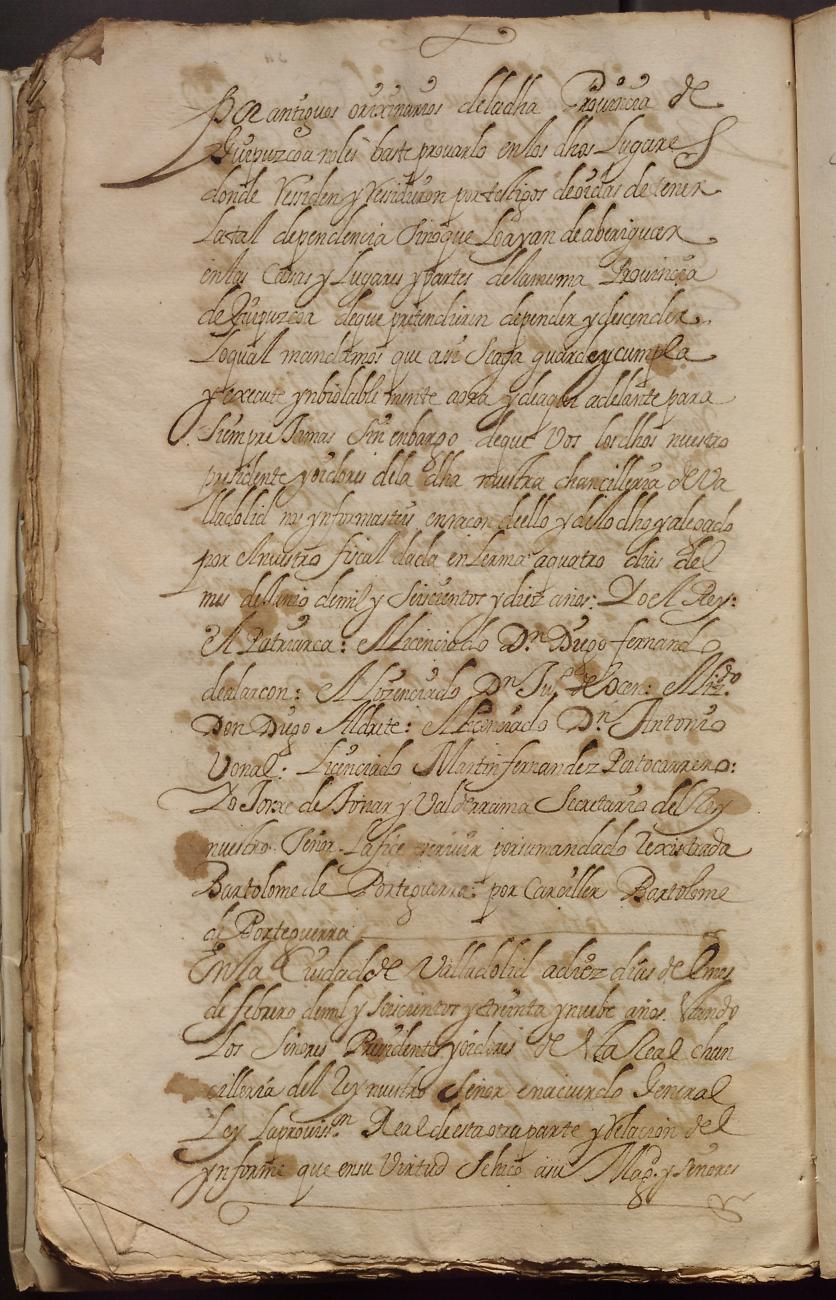 ser antiguos orixinarios de la dha Provincia de
Guipuzcoa no les baste provarlo en los dhos Lugares
donde Ressiden y Ressidieron por testigos de oidas de tener
La tal dependencia Sino que Lo ayan de aberiguar
en las Casas y Lugares y partes de la misma Provincia
de Guipuzcoa de que pretendieren depender y descender
Lo qual mandamos que asi Se aga guarde y cumpla
y execute ynbiolable mente aora y de aqui adelante para
Siempre Jamas Sin enbargo de que Vos los dhos nuestro
presidente y oidores de la dha nuestra chancilleria de Va
lladolid nos ynformasteis en racon de ello y de lo dho y alegado
por el nuestro fiscal dada en Lerma a quatro dias del
mes de Junio de mil y Seiscientos y diez años: Yo el Rey:
el Patriarca: el licenciado Dn Diego fernando
de alarcon: el Lizenciado Dn Ju° de : el Lizdo
Don Diego Aldrete: el licenciado Dn Antonio
Bonal: Licenciado Martin fernandez Portocarrero:
Yo Jorge de Tovar y Valderrama Secretario del Rey
nuestro Señor La fice escrivir por su mandado Rexistrada
Bartolome de Porteguerra: por Canciller Bartolome
de Porteguerra
En la Ciudad de Valladolid a diez dias del mes
de febrero de mil y Seiscientos y treinta y nuebe años. Estando
Los Señores Presidente y oidores de esta Real chan
cilleria del Rey nuestro Señor en acuerdo General
Ley La provisn Real de esta otra parte y Relacion del
ynforme que en su Virtud Se hiço a su Magd. y Señores